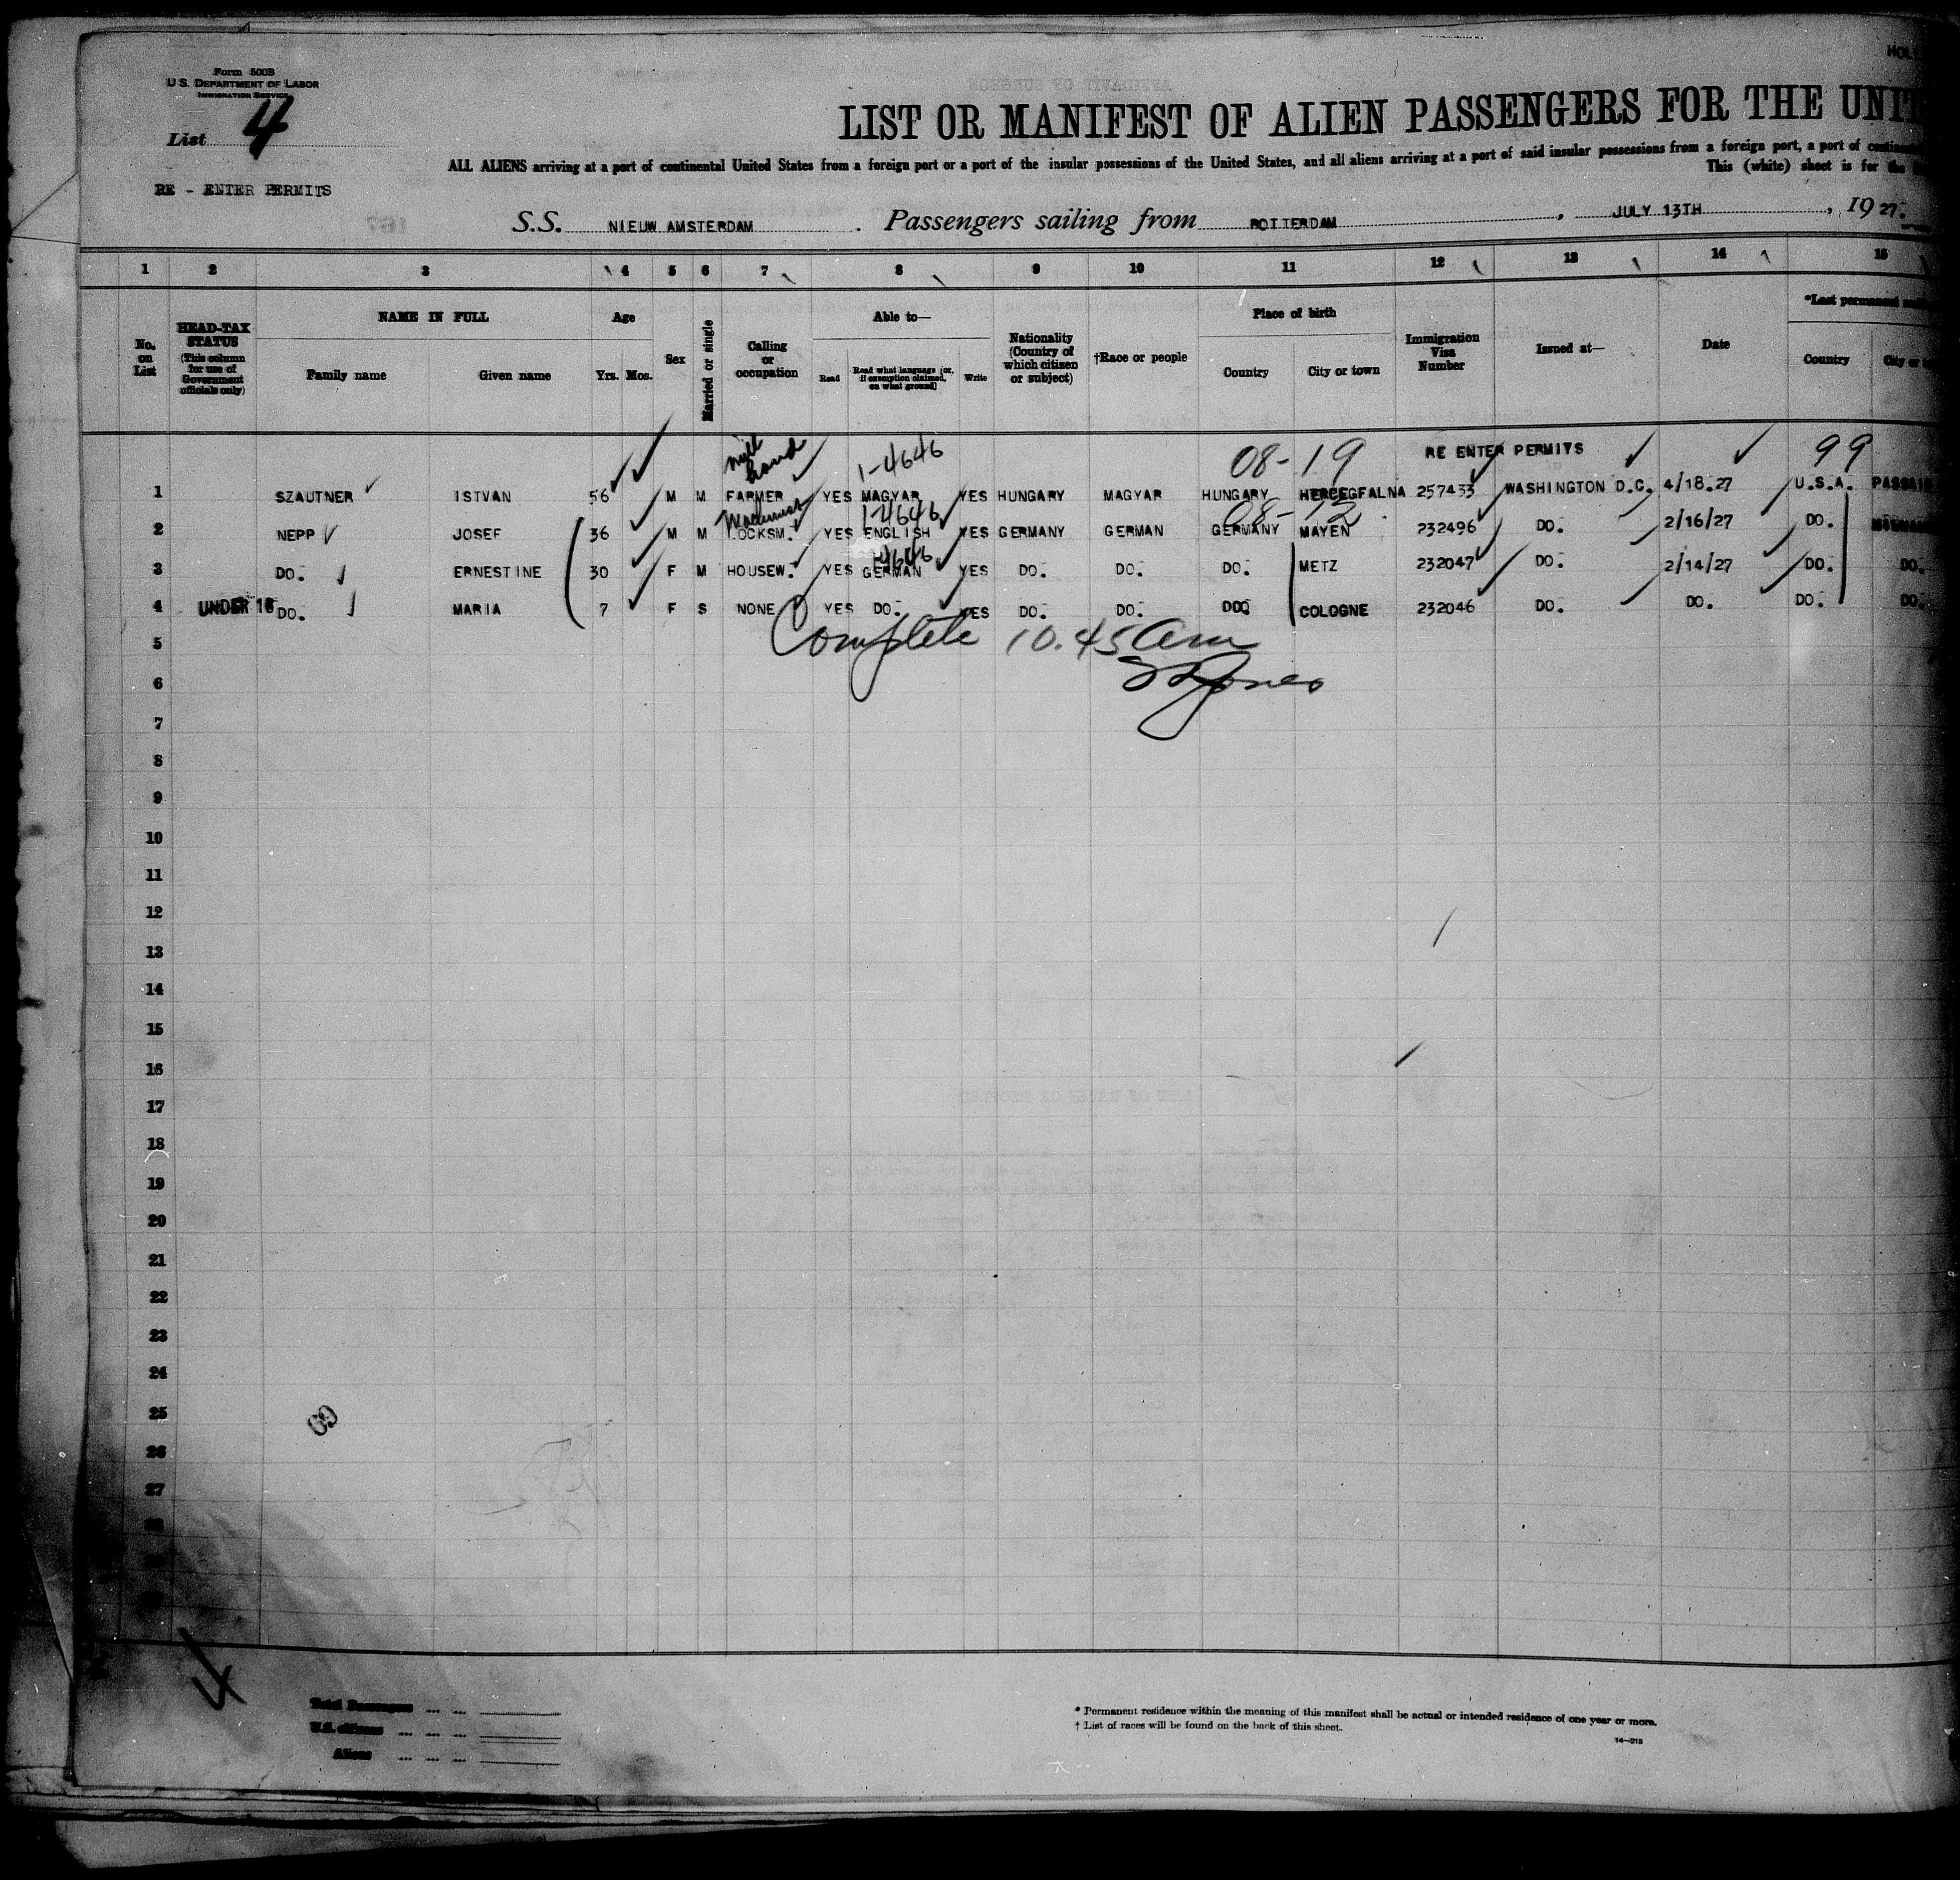 Form 500B
U. S. DEPARTMENT OF LABOR
IMMIGRATION SERVICE
List 4
RE - ENTER PERMITS
LIST OR MANIFEST OF ALIEN PASSENGERS FOR THE UNIT
ALL ALIENS arriving at a port of continental United States from a foreign port or a port of the insular possessions of the United States, and all aliens arriving at a port of said insular possessions from a foreign port, a port of
This (white) sheet is for the
S.S. NIEUW AMSTERDAM. Passengers sailing from ROTTERDAM, JULY 13TH, 19 27.
1 2 3 4 5 6 7 8 9 10 11 12 13 14 15
No. on List
HEAD-TAX STATUS (This column for use of Government officials only)
NAME IN FULL
Family name Given name
Age
Yrs. Mos.
Sex
Married or single
Calling or occupation
Able to—
Read
Read what language (or, if exemption claimed, on what ground)
Write
Nationality (Country of which citizen or subject)
†Race or people
Place of birth
Country City or town
Immigration Visa Number
Issued at—
Date
*Last permanent
Country City or
mill hand 1-4646 08-19 RE ENTER PERMITS 99
1 SZAUTNER ISTVAN 56 M M FARMER YES MAGYAR YES HUNGARY MAGYAR HUNGARY HERCEGFALNA 257433 WASHINGTON D.C. 4/18.27 U.S.A. PASSAIC
Machinist 1-4646 08-12
2 NEPP JOSEF 36 M M LOCKSM. YES ENGLISH YES GERMANY GERMAN GERMANY MAYEN 232496 DO. 2/16/27 DO.
4646
3 DO. ERNESTINE 30 F M HOUSEW. YES GERMAN YES DO. DO. DO. METZ 232047 DO. 2/14/27 DO. DO.
4 UNDER 16 DO. MARIA 7 F S NONE YES DO. YES DO. DO. DO COLOGNE 232046 DO. DO. DO. DO.
5 Complete 10.45 am
6 Jones
7
8
9
10
11
12
13
14
15
16
17
18
19
20
21
22
23
24
25
26
27
28
69
4
Total Passengers
U.S. citizens
Aliens
* Permanent residence within the meaning of this manifest shall be actual or intended residence of one year or more.
† List of races will be found on the back of this sheet.
14—213